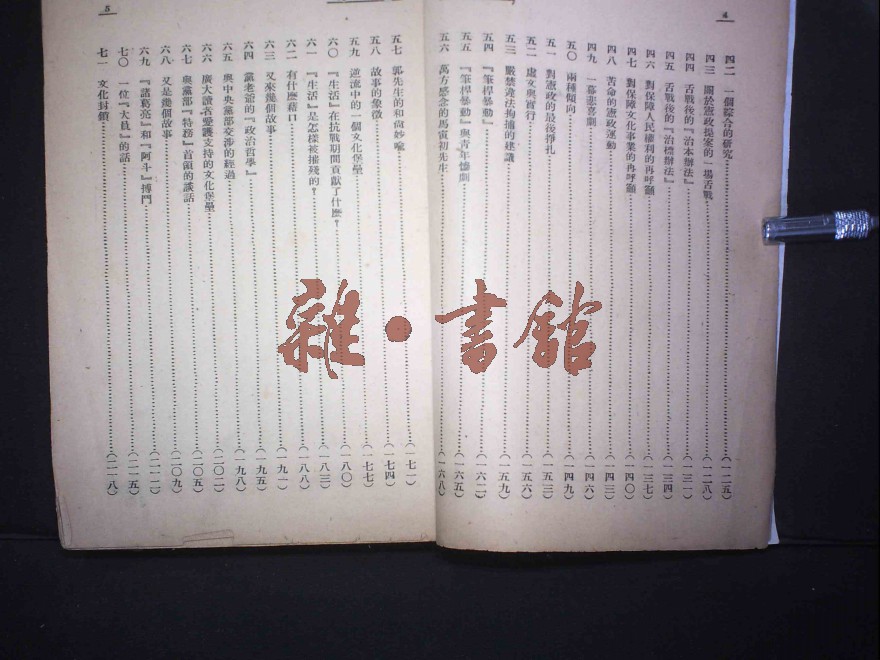 4
四二 一個綜合的研究（一二五）
四三 關於憲政提案的一場舌戰（一二八）
四四 舌戰後的『治本辦法』（一三一）
四五 舌戰後的『治標辦法』（一三四）
四六 對保障人民權利的再呼籲（一三七）
四七 對保障文化事業的再呼籲（一四〇）
四八 苦命的憲政運動（一四三）
四九 一幕悲喜劇（一四六）
五〇 兩種傾向（一四九）
五一 對憲政的最後掙扎（一五三）
五二 虛文與實行（一五六）
五三 嚴禁違法拘捕的建議（一五九）
五四 『筆桿暴動』（一六二）
五五 『筆桿暴動』與青年慘劇（一六五）
五六 萬方感念的馬寅初先生（一六八）
5
五七 郭先生的和尚妙喻（一七一）
五八 故事的象徵（一七四）
五九 逆流中的一個文化堡壘（一七七）
六〇 『生活』在抗戰期間貢獻了什麼？（一八〇）
六一 『生活』是怎樣被摧殘的？（一八三）
六二 有什麼藉口（一八八）
六三 又來幾個故事（一九一）
六四 黨老爺的『政治哲學』（一九五）
六五 與中央黨部交涉的經過（一九八）
六六 廣大讀者愛護支持的文化堡壘（二〇二）
六七 與黨部『特務』首領的談話（二〇五）
六八 又是幾個故事（二〇九）
六九 『諸葛亮』和『阿斗』搏鬥（二一二）
七〇 一位『大員』的話（二一五）
七一 文化封鎖（二一八）
雜·書館